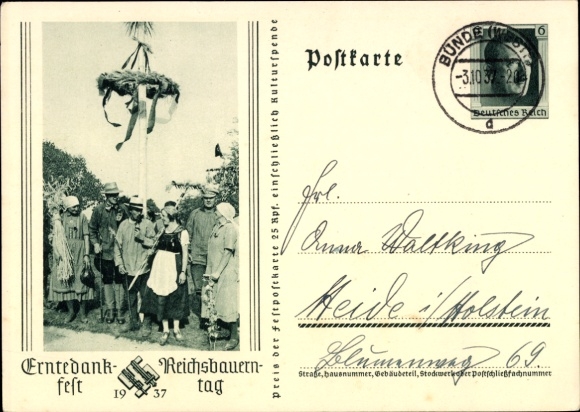 Erntedank-
fest
Reichsbauern-
tag
19 37
Preis der Festpostkarte 25 Rpf. einschließlich Kulturspende
Postkarte
BÜNDE (WESTF)
-3.10.37.-20
d
6
Deutsches Reich
Frl.
Anna Waltking
Heide i/Holstein
Blumenweg 69.
Straße, Hausnummer, Gebäudeteil, Stockwerk oder Postschließfachnummer